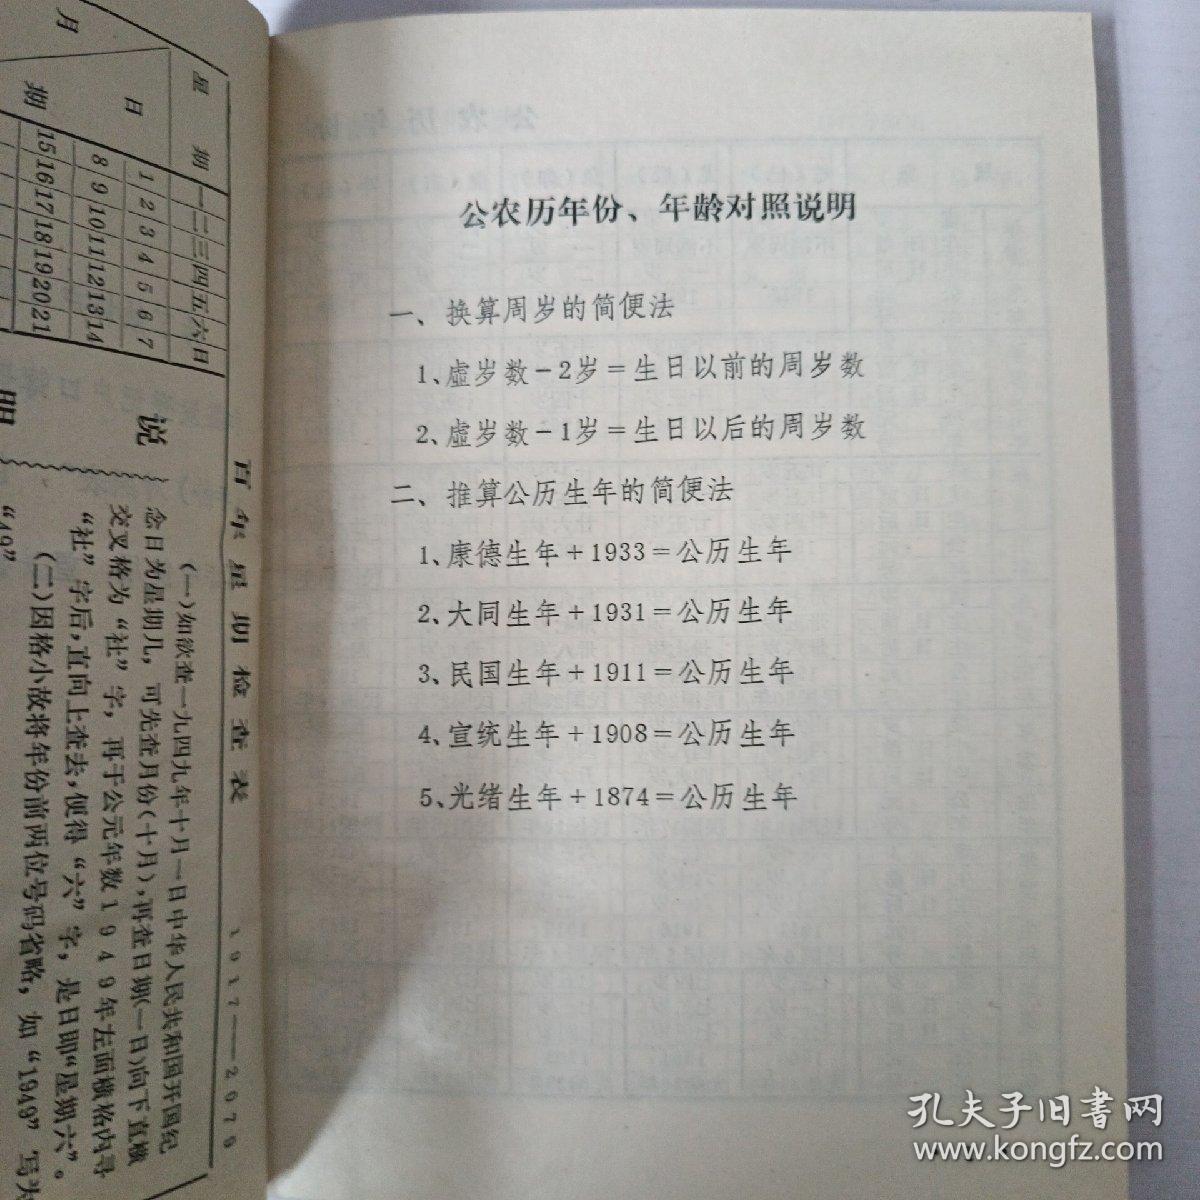 公农历年份、年龄对照说明
一、换算周岁的简便法
1、虚岁数－2岁＝生日以前的周岁数
2、虚岁数－1岁＝生日以后的周岁数
二、推算公历生年的简便法
1、康德生年＋1933＝公历生年
2、大同生年＋1931＝公历生年
3、民国生年＋1911＝公历生年
4、宣统生年＋1908＝公历生年
5、光绪生年＋1874＝公历生年
百年星期检查表
星期 一二三四五六日
月
日
星期
1 2 3 4 5 6 7
8 9 10 11 12 13 14
15 16 17 18 19 20 21
说明
(一)如欲查一九四九年十月一日中华人民共和国开国纪
念日为星期几，可先查月份(十月)，再查日期(一日)向下直横
交叉格为“社”字，再于公元年数1949年左面横格内寻
“社”字后，直向上查去，便得“六”字，是日即“星期六”。
(二)因格小故将年份前两位号码省略，如“1949”写为
“49”
孔夫子旧书网
www.kongfz.com